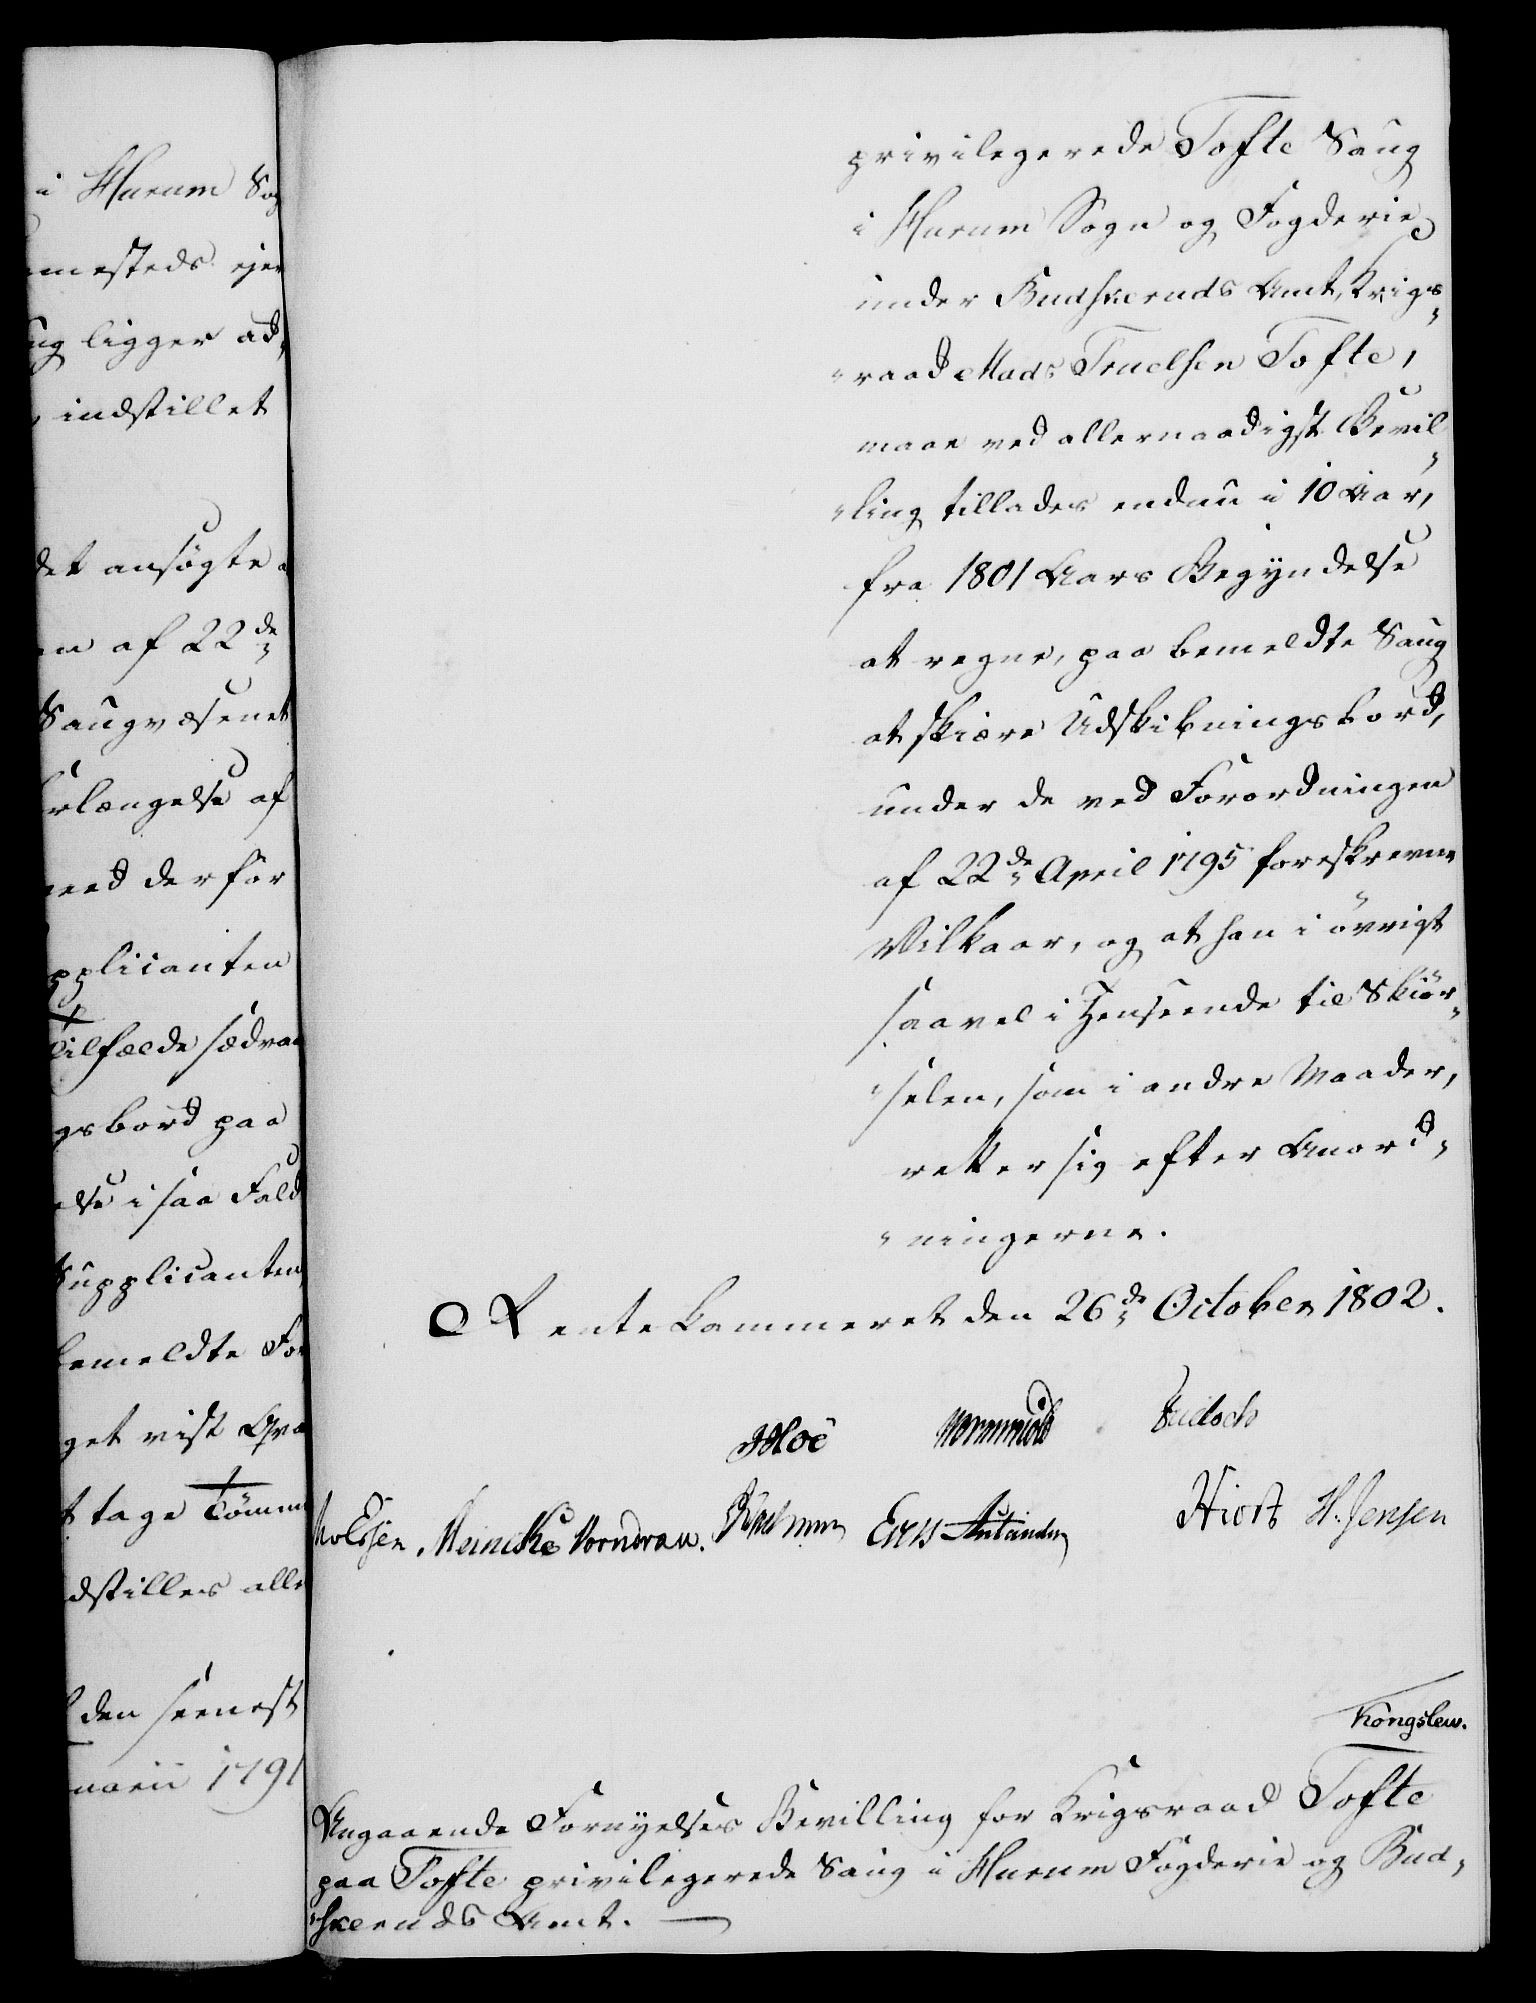 i Hurum Sog
mesteds ejer
ug ligger ad,
indstillet
det ansøgte a
en af 22de
Saugvæsenet
rlængelse af
med derfor
pplicanten
Tilfælde sædvan
gsbord paa
else i saa Fald
Supplicanten
bemeldte For
get vist Qva
t tage Tömm
dstilles alle
den seenest
nuarii 1791
privilegerede Tofte Saug
i Hurum Sogn og Fogderie
under Budskeruds Amt, Krigs,
„raad Mads Truelsen Tofte,
maae ved allernaadigst Bevil,
„ling tillades endnu i 10 Aar,
fra 1801 Aars Begyndelse
at regne, paa bemeldte Saug
at skiære Udskibningsbord,
under de ved Forordningen
af 22de April 1795 foreskrevne
Vilkaar, og at han i övrigt
saavel i Henseende til Skiör,
„selen, som i andre Maader,
retter sig efter Anord,
„ningerne.
Rentekammeret den 26de October 1802.
Moe Wormskiold
Meincke Vorndran. Hiort H. Jensen
Kongslew.
Angaaende Fornyelses Bevilling for Krigsraad Tofte
paa Tofte privilegerede Saug i Hurum Fogderie og Bud,
„skeruds Amt.